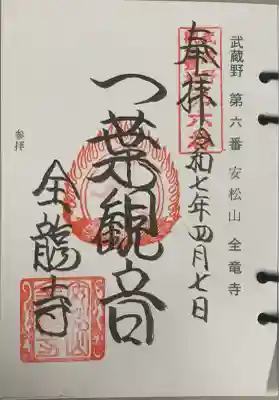 武蔵野 第六番 安松山 全竜寺
奉拝
令和七年四月七日
一葉観音
全龍寺
参拝